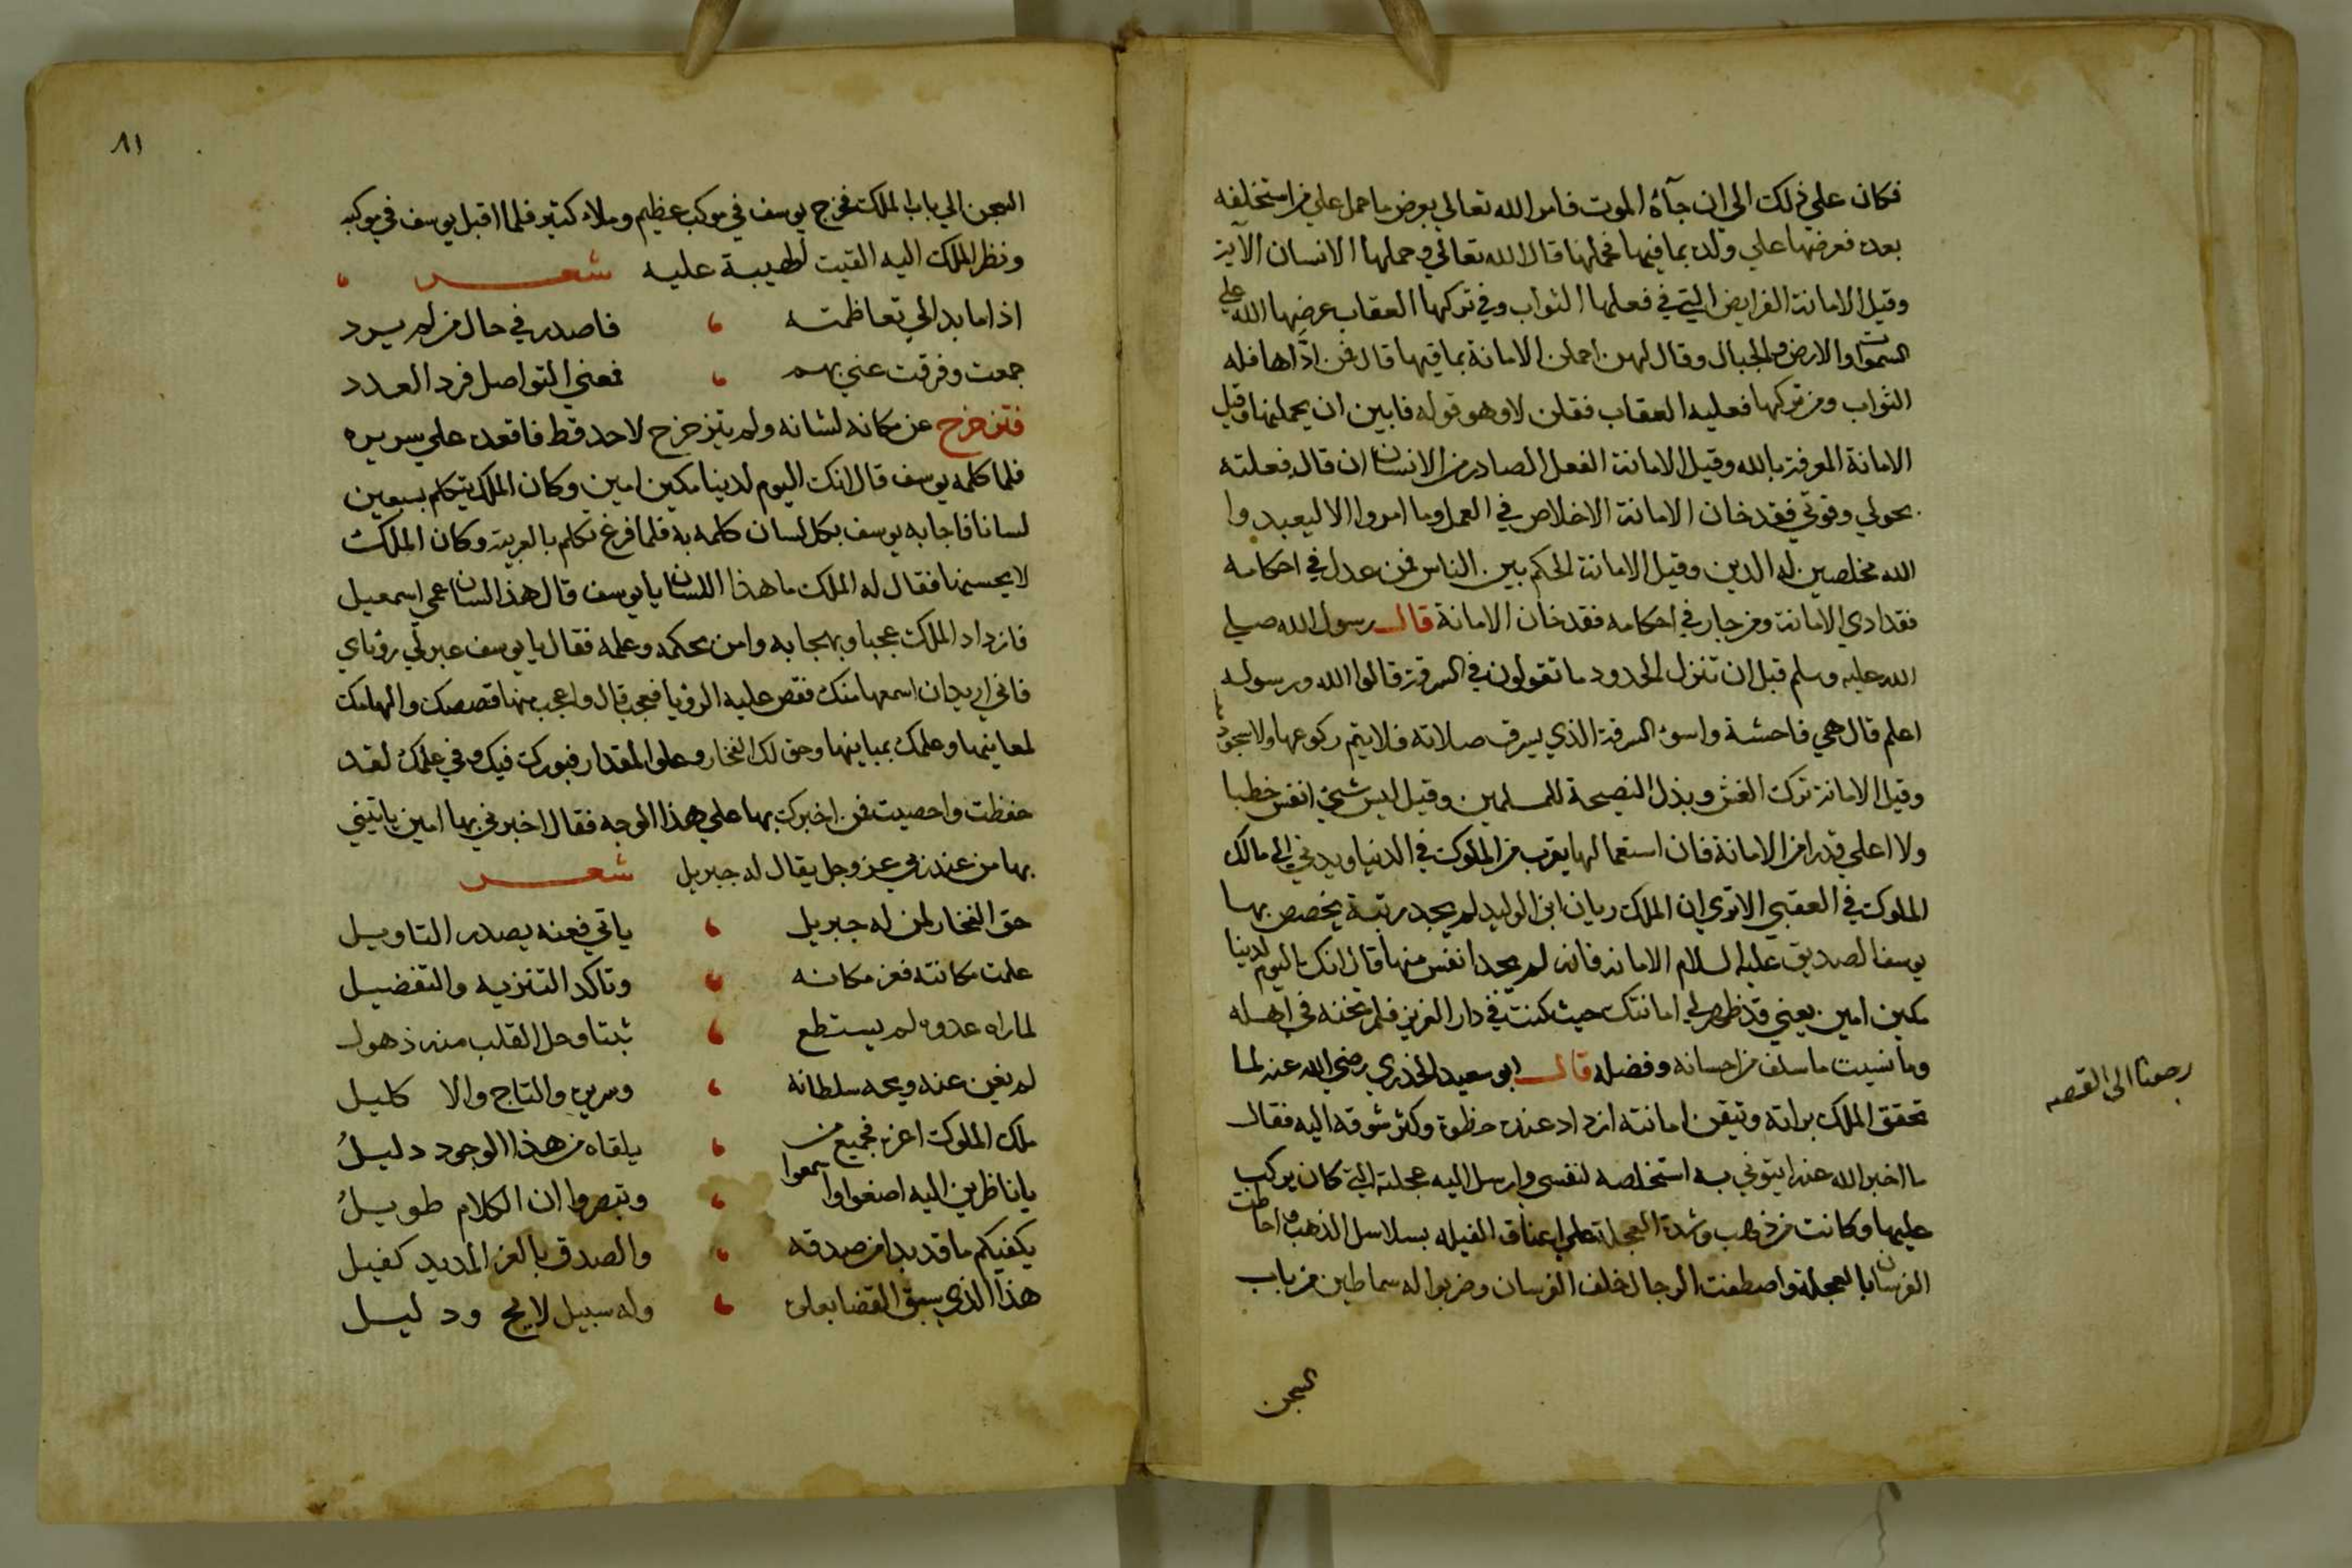 فكان على ذلك الي ان جآه الموت فامر الله تعالي بعرض ما حمل علي من استخلفه
بعده فعرضها علي ولده بما فيها فحملها قال الله تعالي وحملها الانسان الآية
وقيل الامانة الفرايض التي في فعلها الثواب وفي تركها العقاب عرضها الله علي
السموات والارض والجبال وقال لهن احملن الامانة بما فيها قال فمن ادّاها فله
الثواب ومن تركها فعليه العقاب فقلن لا وهو قوله فابين ان يحملنها وقيل
الامانة المعرفة بالله وقيل الامانة الفعل الصادر من الانسان ان قال فعلته
بحولي وقوتي فقد خان الامانة الاخلاص في العمل وما امروا الا ليعبدوا
الله مخلصين له الدين وقيل الامانة الحكم بين الناس فمن عدل في احكامه
فقد ادي الامانة ومن جار في احكامه فقد خان الامانة قال رسول الله صلي
الله عليه وسلم قبل ان تنزل الحدود ما تقولون في السرقة قالوا الله ورسوله
اعلم قال هي فاحشة واسوء السرقة الذي يسرق صلاته فلا يتم ركوعها ولا سجودها
وقيل الامانة ترك الغش وبذل النصيحة للمسلمين وقيل ليس شيء انفس خطبا
ولا اعلي قدرا من الامانة فان استعمالها يقرب من الملوك في الدنيا ويدني الي مالك
الملوك في العقبي الا تري ان الملك ريان ابن الوليد لم يجد رتبة يخصص بها
يوسف الصديق عليه السلام الا امانه فانه لم يجد انفس منها قال انك اليوم لدينا
مكين امين يعني قد ظهر لي امانتك حيث كنت في دار العزيز فلم تخنه في اهله
وما نسيت ما سلف من احسانه وفضله قال ابو سعيد الخدري رضي الله عنه لما
تحقق الملك براته وتيقن امانته ازداد عنده حظوة وكثر شوقه اليه فقال
ما اخبر الله عنه ايتوني به استخلصه لنفسي وارسل اليه عجلته التي كان يركب
عليها وكانت من ذهب وشدة العجلة علي اعناق الفيله بسلاسل الذهب واحاطت
الفرسان بالعجلة واصطفت الرجال خلف الفرسان وضربوا له سماطين من باب
السجن
رجعنا الى القصه
٨١
السجن الي باب الملك فخرج يوسف في موكب عظيم وملاء كثير فلما اقبل يوسف في موكبه
ونظر الملك اليه القيت الهيبة عليه شعر
اذا ما بدا لي تعاظمته فاصدر في حال من لم يرد
جمعت وفرقت عني بهم فمعني التواصل فرد العدد
فتزحزح عن مكانه لشانه ولم يتزحزح لاحد قط فاقعده علي سريره
فلما كلمه يوسف قال انك اليوم لدينا مكين امين وكان الملك يتكلم بسبعين
لسانا فاجابه يوسف بكل لسان كلمه به فلما فرغ تكلم بالعربية وكان الملك
لا يحسنها فقال له الملك ما هذا اللسان يا يوسف قال هذا لسان عمي اسمعيل
فازداد الملك عجبا وبهجا به وامن بحكمه وعلمه فقال يا يوسف عبر لي رؤياي
فاني اريد ان اسمعها منك فقص عليه الرؤيا فعجب قال واعجب منها قصصك والهامك
لمعاينها وعلمك بمباينها وحق لك الفخار وعلو المقدار فبورك فيك وفي علمك لقد
حفظت واحصيت فمن اخبرك بها علي هذا الوجه فقال اخبرني بها امين ياتيني
بها من عند ربي عز وجل يقال له جبريل شعر
حق الفخار لمن له جبريل ياتي فعنه يصدر التاويل
علمت مكانته فعز مكانه وتاكد التنزيه والتفضيل
لما راه عدوه لم يستطع ثبتا وحل القلب منه ذهول
لم يغن عنه ويحه سلطانه وسريره والتاج والا كليل
ملك الملوك اعزه فجميع من يلقاه من هذا الوجود دليلُ
يا ناظرين اليه اصغوا واسمعوا وتبصروا ان الكلام طويلُ
يكفيكم ما قد بدا من صدقه والصدق بالعز المديد كفيل
هذا الذي سبق القضا بعلوه وله سبيل لايح ودليل